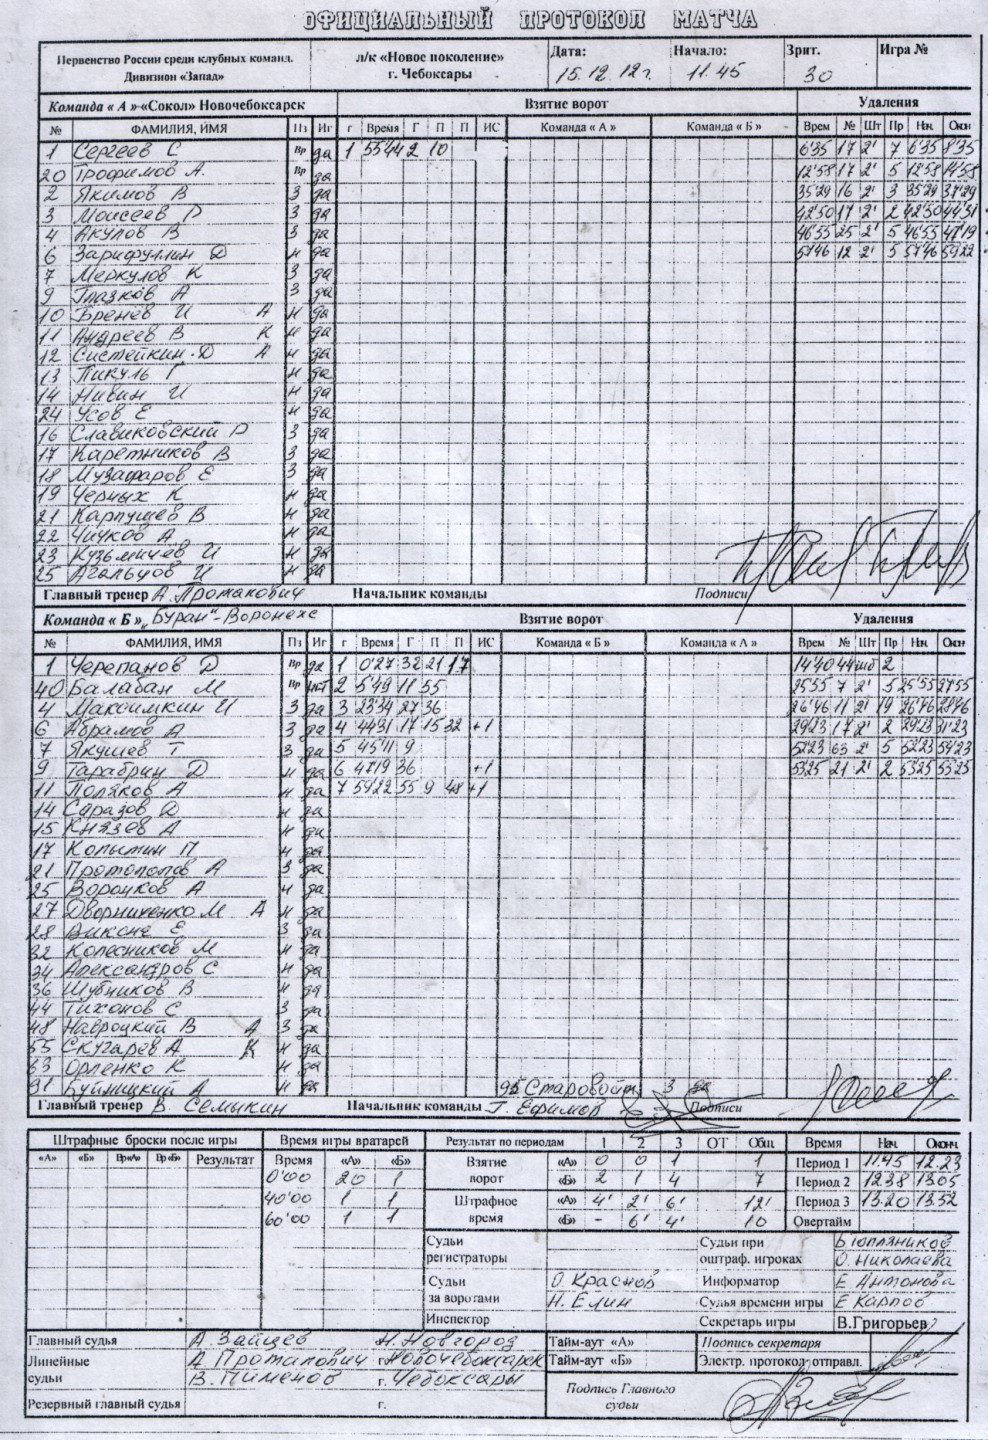 ОФИЦИАЛЬНЫЙ ПРОТОКОЛ МАТЧА
Первенство России среди клубных команд. Дивизион «Запад» л/к «Новое поколение» г. Чебоксары Дата: 15.12.12г. Начало: 11.45 Зрит. 30 Игра №
Команда « А »-«Сокол» Новочебоксарск Взятие ворот Удаления
№ ФАМИЛИЯ, ИМЯ Пз Иг г Время Г П П ИС Команда « А » Команда « Б » Врем № Шт Пр Нач. Окон
1 Сергеев С Вр да 1 55'44 2 10 6'35 17 2' 7 6'35 8'35
20 Трофимов А. Вр да 12'58 17 2' 5 12'58 14'58
2 Якимов В З да 35'29 16 2' 3 35'29 37'29
3 Моисеев Р З да 42'50 17 2' 2 42'50 44'31
4 Акулов В З да 46'55 25 2' 5 46'55 47'19
6 Зарифуллин Д Н да 57'46 12 2' 5 57'46 59'22
7 Меркулов К З да
9 Глазков А З да
10 Бренёв И А Н да
11 Андреев В К Н да
12 Систейкин Д А Н да
13 Пикуль Г Н да
14 Нивин И Н да
24 Усов Е Н да
16 Славиковский Р З да
17 Каретников В З да
18 Музафаров Е З да
19 Черных К Н да
21 Карпушев В Н да
22 Чичков А Н да
23 Кузьмичев И Н да
25 Агальцов И Н да
Главный тренер А. Протапович Начальник команды Подписи
Команда « Б » „Буран“-Воронеж Взятие ворот Удаления
№ ФАМИЛИЯ, ИМЯ Пз Иг г Время Г П П ИС Команда « Б » Команда « А » Врем № Шт Пр Нач. Окон
1 Черепанов Д Вр да 1 0'27 32 21 17 14'40 44 шб 2
40 Балабан М Вр нет 2 5'49 11 55 25'55 7 2' 5 25'55 27'55
4 Максимкин И З да 3 23'34 27 36 26'46 11 2' 19 26'46 28'46
6 Абрамов А З да 4 44'31 17 15 32 +1 29'23 17 2' 2 29'23 31'23
7 Якушев Т З да 5 45'11 9 52'23 63 2' 5 52'23 54'23
9 Тарабрин Д Н да 6 47'19 36 +1 53'25 21 2' 2 53'25 55'25
11 Поляков А Н да 7 59'22 55 9 48 +1
14 Саразов Д Н да
15 Князев А Н да
17 Копытин П Н да
21 Протопопов А З да
25 Воронков А Н да
27 Дворниченко М А Н да
28 Виконе Е З да
32 Колесников М Н да
34 Александров С Н да
36 Шубников В Н да
44 Тихонов С З да
48 Навроцкий В А З да
55 Скугарев А К Н да
63 Орленко К Н да
91 Буйницкий А Н да 95 Старовойт З да
Главный тренер В Семыкин Начальник команды Г. Ефимов Подписи
Штрафные броски после игры Время игры вратарей Результат по периодам 1 2 3 ОТ Общ. Время Нач. Оконч.
«А» «Б» Вр«А» Вр«Б» Результат Время «А» «Б» Взятие ворот «А» 0 0 1 1 Период 1 11.45 12.23
0'00 20 1 «Б» 2 1 4 7 Период 2 12.38 13.05
40'00 1 1 Штрафное время «А» 4' 2' 6' 12' Период 3 13.20 13.52
60'00 1 1 «Б» - 6' 4' 10 Овертайм
Судьи регистраторы Судьи при оштраф. игроках О. Николаева
Судьи за воротами О. Краснов Н. Елин Информатор Е Антонова
Судья времени игры Е Карпов
Инспектор Секретарь игры В.Григорьев
Главный судья А. Зайцев Н.Новгород Тайм-аут «А» Подпись секретаря
Линейные судьи А Протапович г. Новочебоксарск Тайм-аут «Б» Электр. протокол отправл.
В. Пименов г. Чебоксары Подпись Главного судьи
Резервный главный судья г.